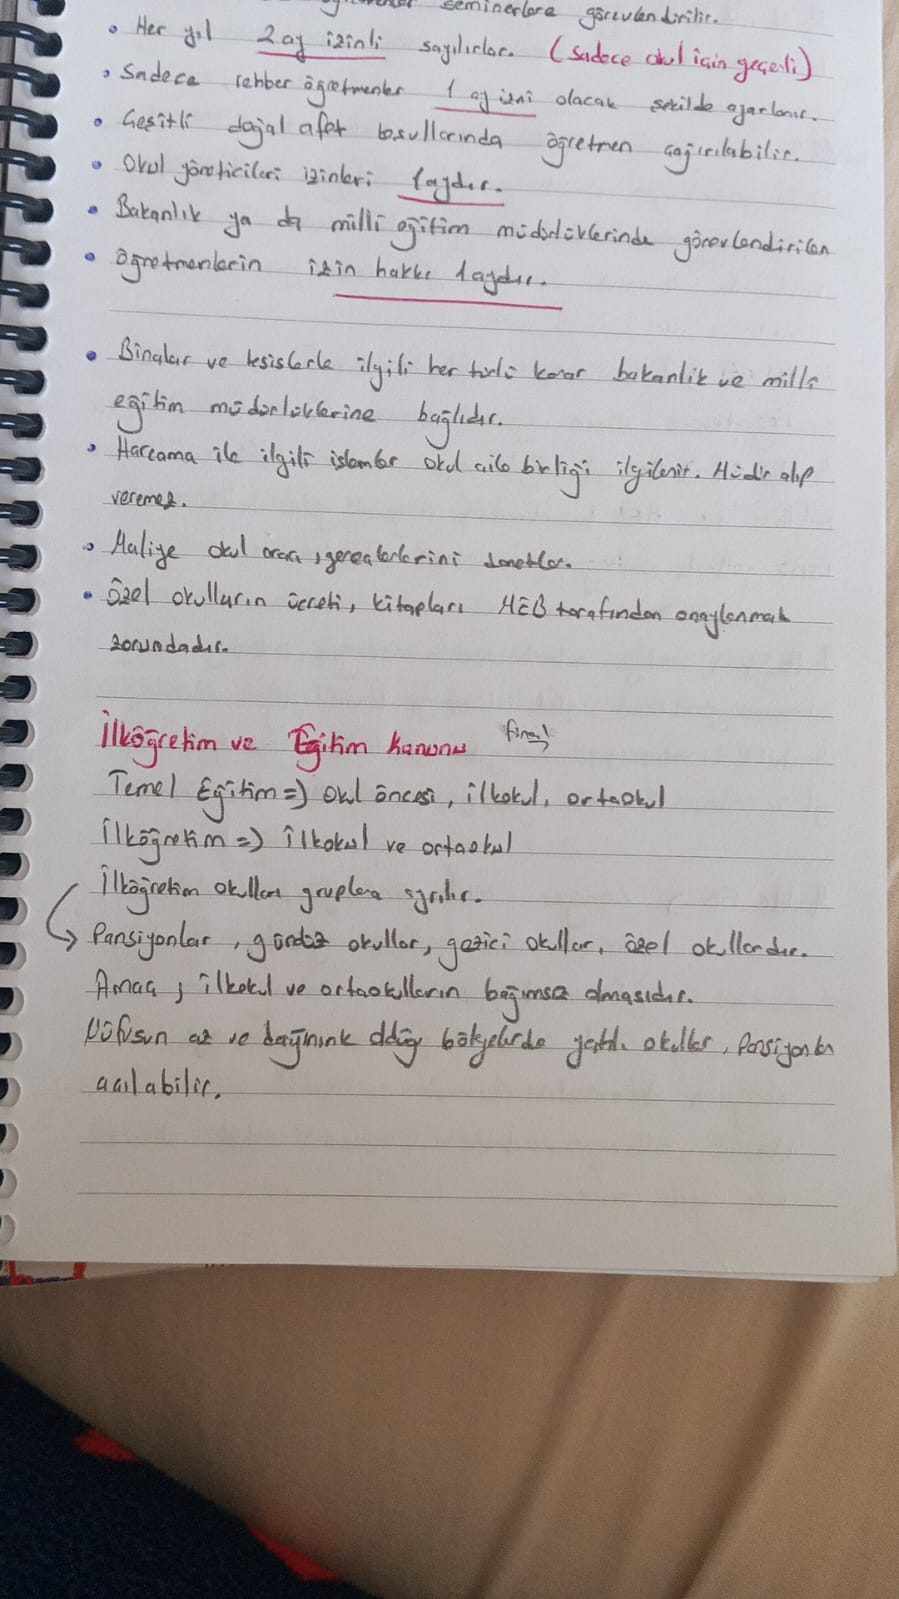 seminerlere görevlendirilir.
• Her yıl 2 ay izinli sayılırlar. (sadece okul için geçerli)
• Sadece rehber öğretmenler 1 ay izni olacak şekilde ayarlanır.
• Çeşitli doğal afet koşullarında öğretmen çağırılabilir.
• Okul yöneticileri izinleri 1 aydır.
• Bakanlık ya da milli eğitim müdürlüklerinde görevlendirilen
• öğretmenlerin izin hakkı 1 aydır.
• Binalar ve tesislerle ilgili her türlü karar bakanlık ve milli
eğitim müdürlüklerine bağlıdır.
• Harcama ile ilgili işlemler okul aile birliği ilgilenir. Müdür alıp
veremez.
• Maliye okul araç, gereçlerini denetler.
• Özel okulların ücreti, kitapları MEB tarafından onaylanmak
zorundadır.
İlköğretim ve Eğitim kanunu final
Temel Eğitim => Okul öncesi, ilkokul, ortaokul
İlköğretim => İlkokul ve ortaokul
İlköğretim okulları gruplara ayrılır.
→ Pansiyonlar, gündüz okullar, gezici okullar, özel okullardır.
Amaç ; ilkokul ve ortaokulların bağımsız olmasıdır.
Nüfusun az ve dağınık olduğu bölgelerde yatılı okullar, Pansiyonlar
açılabilir.